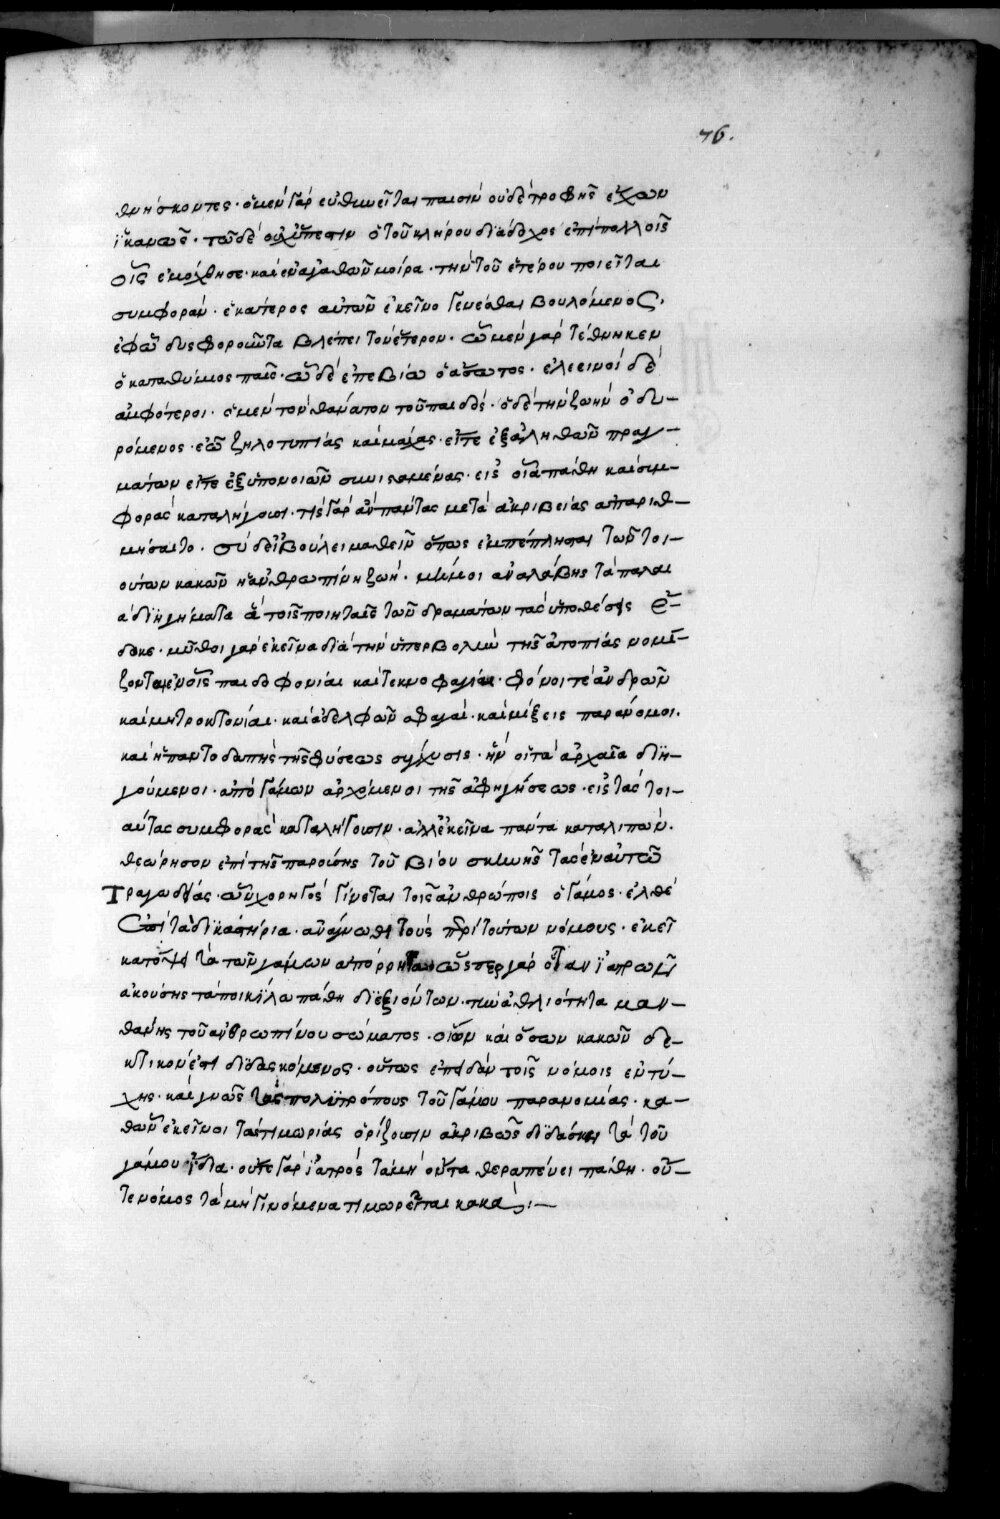 76.
θνήσκοντες· ὁ μὲν γὰρ εὐθηνεῖται παισὶν οὐδὲ τροφῆς ἔχων
ἱκανῶς· τῶ δὲ οὐχ ὕπεστιν ὁ τοῦ κλήρου διάδοχος ἐπὶ πολλοῖς
οἷς ἐμόχθησε· καὶ ἐν ἀγαθῶν μοίρα· τὴν τοῦ ἑτέρου ποιεῖται
συμφοράν· ἑκάτερος αὐτῶν ἐκεῖνο γενέσθαι βουλόμενος,
ἐφ' ᾧ δυσφοροῦντα βλέπει τὸν ἕτερον· ᾧ μὲν γὰρ τέθνηκεν
ὁ καταθύμιος παῖς· ᾧ δὲ ἐπεβίω ὁ ἄσωτος· ἐλεεινοὶ δὲ
ἀμφότεροι· ὁ μὲν τὸν θάνατον τοῦ παιδός· ὁ δὲ τὴν ζωὴν ὀδυ-
ρόμενος· ἐῶ ζηλοτυπίας καὶ μάχας· εἴτε ἐξ ἀληθῶν πραγ-
μάτων εἴτε ἐξ ὑπονοιῶν συνισταμένας· εἰς οἷα πάθη καὶ συμ-
φορὰς καταλήγουσι· τίς γὰρ ἂν πάντας μετὰ ἀκριβείας ἀπαριθ-
μήσαιτο· σὺ δὲ εἰ βούλει μαθεῖν ὅπως ἐμπέπλησται τῶν τοι-
ούτων κακῶν ἡ ἀνθρωπίνη ζωή· μή μοι ἀναλάβης τὰ παλαι
ὰ διηγήματα ἃ τοῖς ποιηταῖς τῶν δραμάτων τὰς ὑποθέσεις ἔ-
δωκε· μῦθοι γὰρ ἐκεῖνα διὰ τὴν ὑπερβολὴν τῆς ἀτοπίας νομί-
ζονται ἐν οἷς παιδοφονίαι καὶ τεκνοφαγίαι· φόνοι τε ἀνδρῶν
καὶ μητροκτονίαι· καὶ ἀδελφῶν σφαγαί· καὶ μίξεις παράνομοι·
καὶ ἡ παντοδαπὴς τῆς φύσεως σύγχυσις· ἣν οἱ τὰ ἀρχαῖα διη-
γούμενοι· ἀπὸ γάμων ἀρχόμενοι τῆς ἀφηγήσεως· εἰς τὰς τοι-
αύτας συμφορὰς καταλήγουσιν· ἀλλ' ἐκεῖνα πάντα καταλιπών·
θεώρησον ἐπὶ τῆς παρούσης τοῦ βίου σκηνῆς τὰς ἐν αὐτῶ
τραγωδίας· ὧν χορηγὸς γίνεται τοῖς ἀνθρώποις ὁ γάμος· ἐλθὲ
ἐπὶ τὰ δικαστήρια· ἀνάγνωθι τοὺς περὶ τούτων νόμους· ἐκεῖ
κατόψει τὰ τῶν γάμων ἀπόρρητα ὥσπερ γὰρ ὅταν ἰατρῶν
ἀκούσης τὰ ποικίλα πάθη διεξιόντων· τὴν ἀθλιότητα μαν-
θάνης τοῦ ἀνθρωπίνου σώματος· οἵων καὶ ὅσων κακῶν δε-
κτικόν ἐστι διδασκόμενος· οὕτως ἐπειδὰν τοῖς νόμοις ἐντύ-
χης· καὶ γνῷς τὰς πολυτρόπους τοῦ γάμου παρανομίας· κα-
θ' ὧν ἐκεῖνοι τὰς τιμωρίας ὁρίζουσιν ἀκριβῶς διδάσκη τὰ τοῦ
γάμου ἴδια· οὔτε γὰρ ἰατρὸς τὰ μὴ ὄντα θεραπεύει πάθη· οὔ-
τε νόμος τὰ μὴ γινόμενα τιμωρεῖται κακά:—